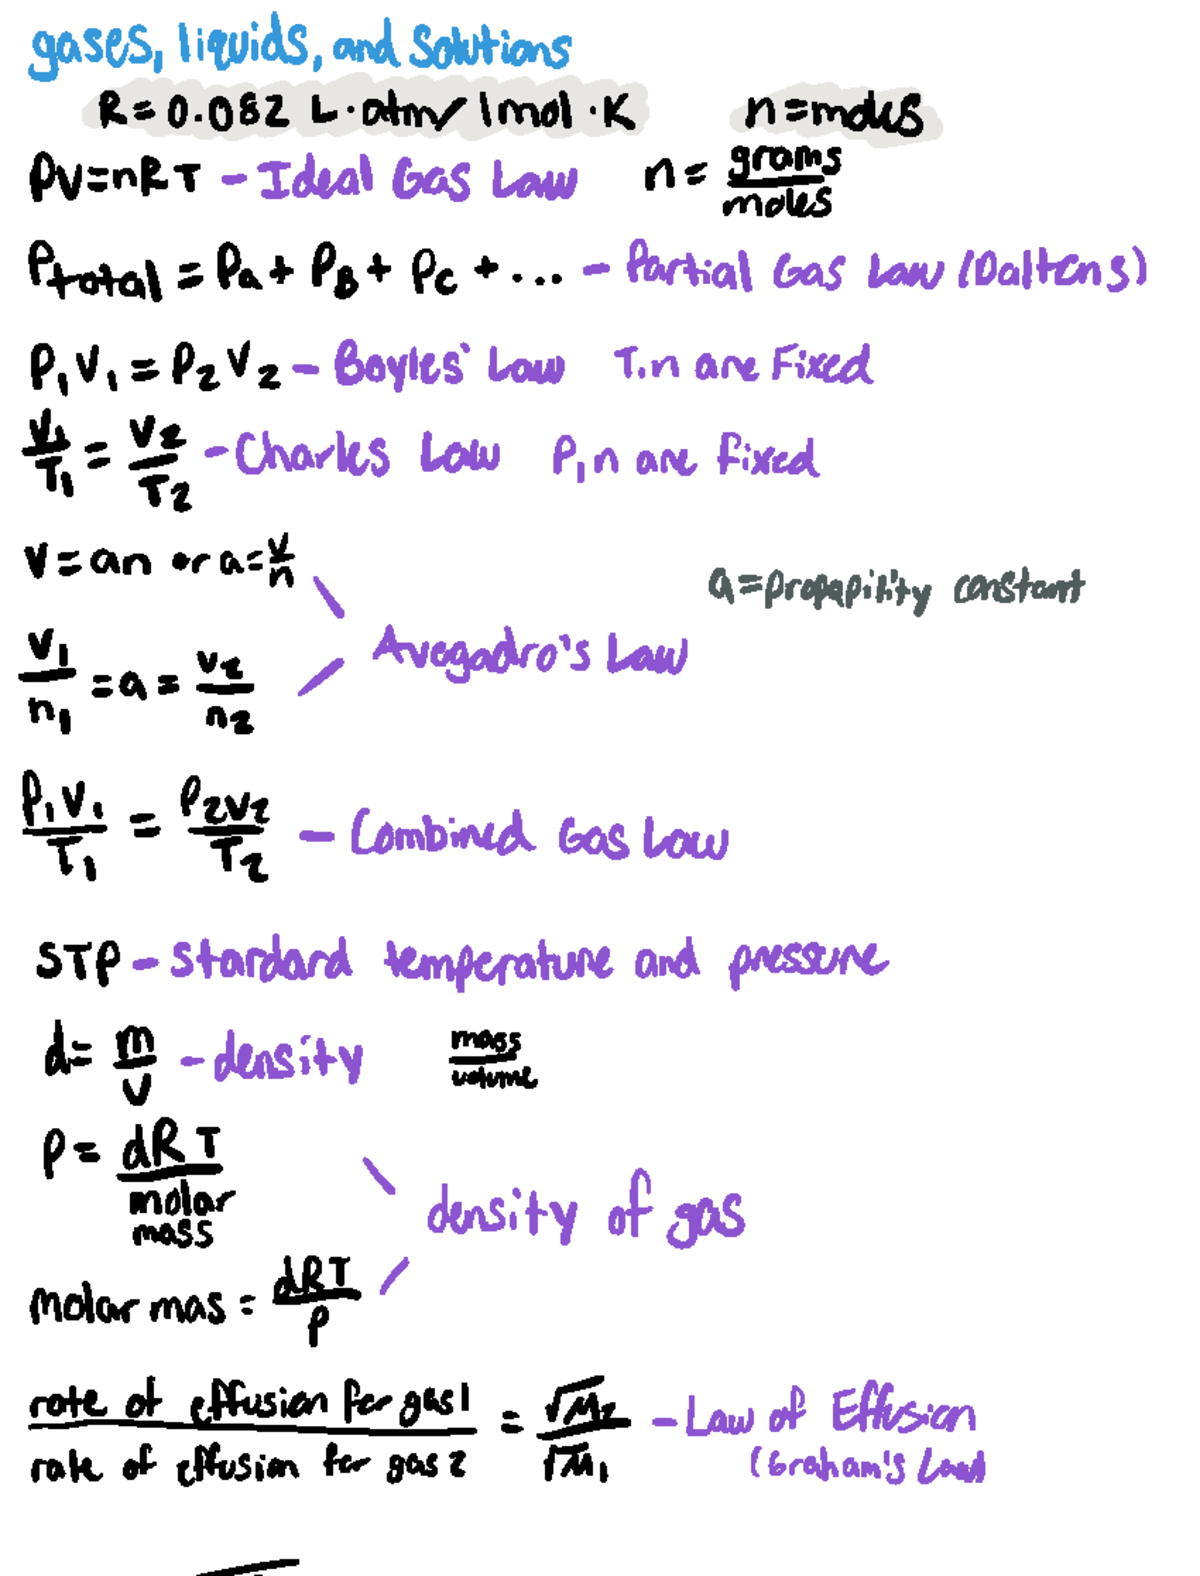 gases, liquids, and solutions
R = 0.082 L·atm/1mol·K n = moles
PV = nRT - Ideal Gas Law n = grams/moles
Ptotal = Pa + PB + Pc + ... - Partial Gas Law (Daltons)
P₁V₁ = P₂V₂ - Boyles' Law T,n are Fixed
V₁/T₁ = V₂/T₂ - Charles Law P,n are fixed
V = an or a = V/n
a = propapility constant
Avogadro's Law
V₁/n₁ = a = V₂/n₂
P₁V₁/T₁ = P₂V₂/T₂ - Combined Gas Law
STP - Stardard temperature and pressure
d = m/V - density mass/volume
P = dRT/molar mass
density of gas
molar mas = dRT/P
rate of effusion for gas 1/rate of effusion for gas 2 = √M₂/√M₁ - Law of Effusion
(Graham's Law)